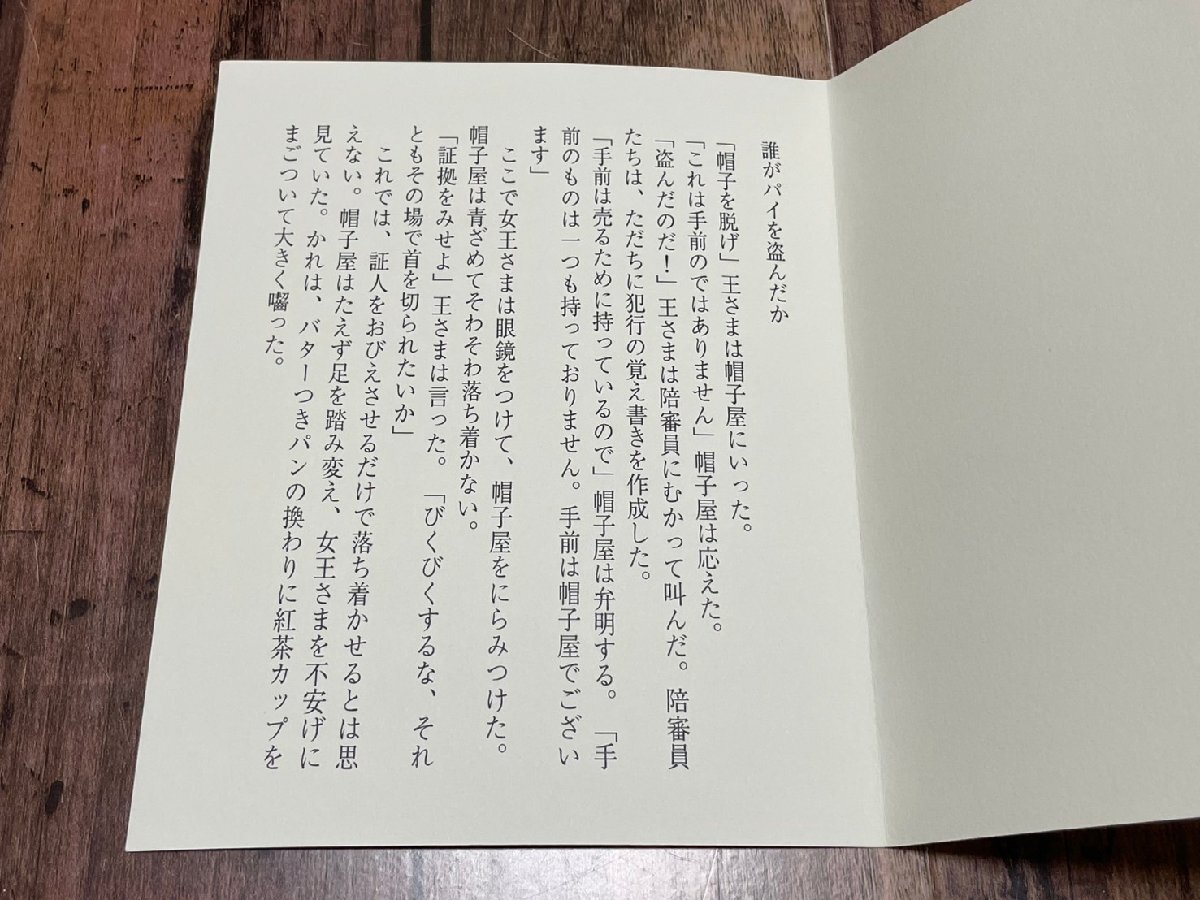 誰がパイを盗んだか
「帽子を脱げ」王さまは帽子屋にいった。
「これは手前のではありません」帽子屋は応えた。
「盗んだのだ！」王さまは陪審員にむかって叫んだ。陪審員
たちは、ただちに犯行の覚え書きを作成した。
「手前は売るために持っているので」帽子屋は弁明する。「手
前のものは一つも持っておりません。手前は帽子屋でござい
ます」
ここで女王さまは眼鏡をつけて、帽子屋をにらみつけた。
帽子屋は青ざめてそわそわ落ち着かない。
「証拠をみせよ」王さまは言った。「びくびくするな、それ
ともその場で首を切られたいか」
これでは、証人をおびえさせるだけで落ち着かせるとは思
えない。帽子屋はたえず足を踏み変え、女王さまを不安げに
見ていた。かれは、バターつきパンの換わりに紅茶カップを
まごついて大きく囓った。